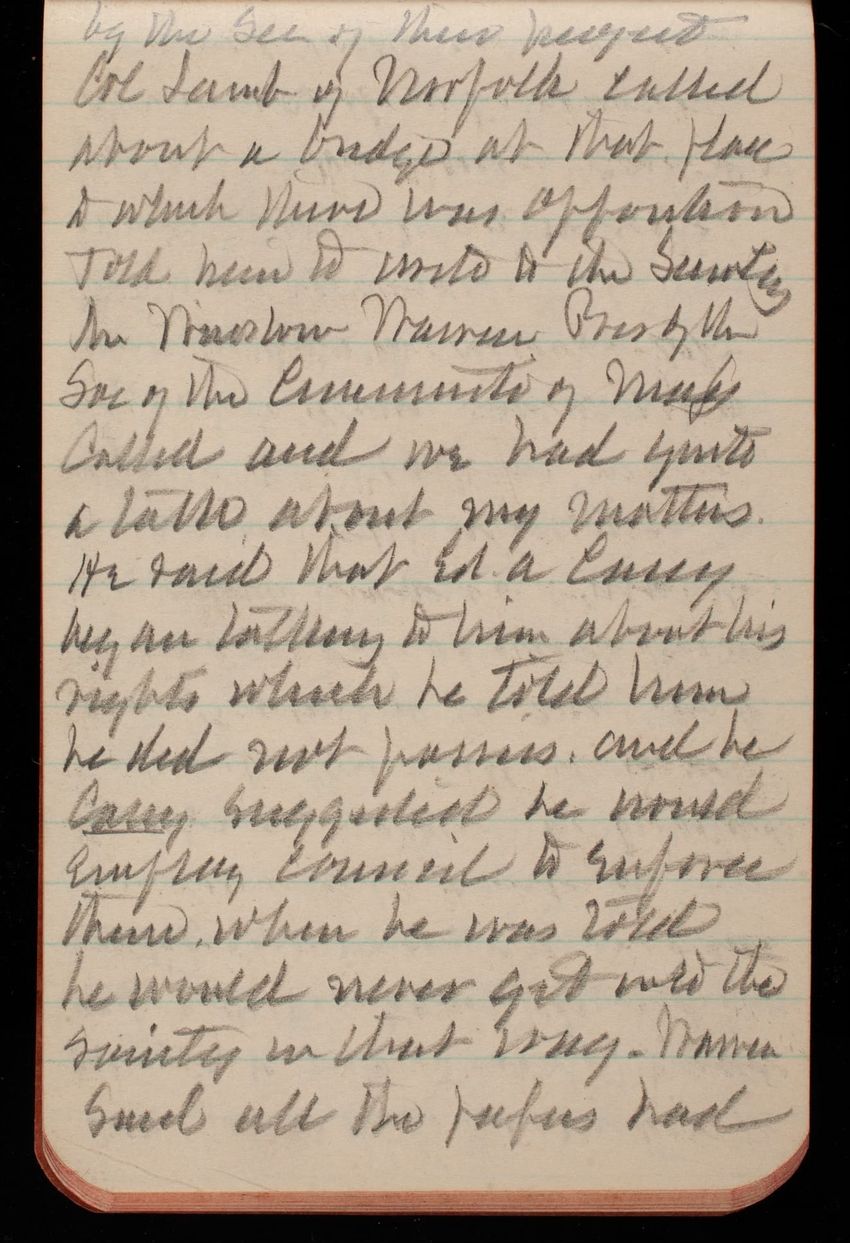 by the Sec of their project
Col Lamb of Norfolk called
about a bridge at that place
to which there was opposition
Told him to write to the Secretary
Mr Winslow Warren Pres of the
Soc of the Cincinnati of Mass
Called and we had quite
a talk about my matters.
He said that Ed. a Casey
began talking to him about his
rights which he told him
he did not possess. and he
Casey suggested he would
Employ council to enforce
them. when he was told
he would never get into the
Society in that way - Warren
Said all the papers had